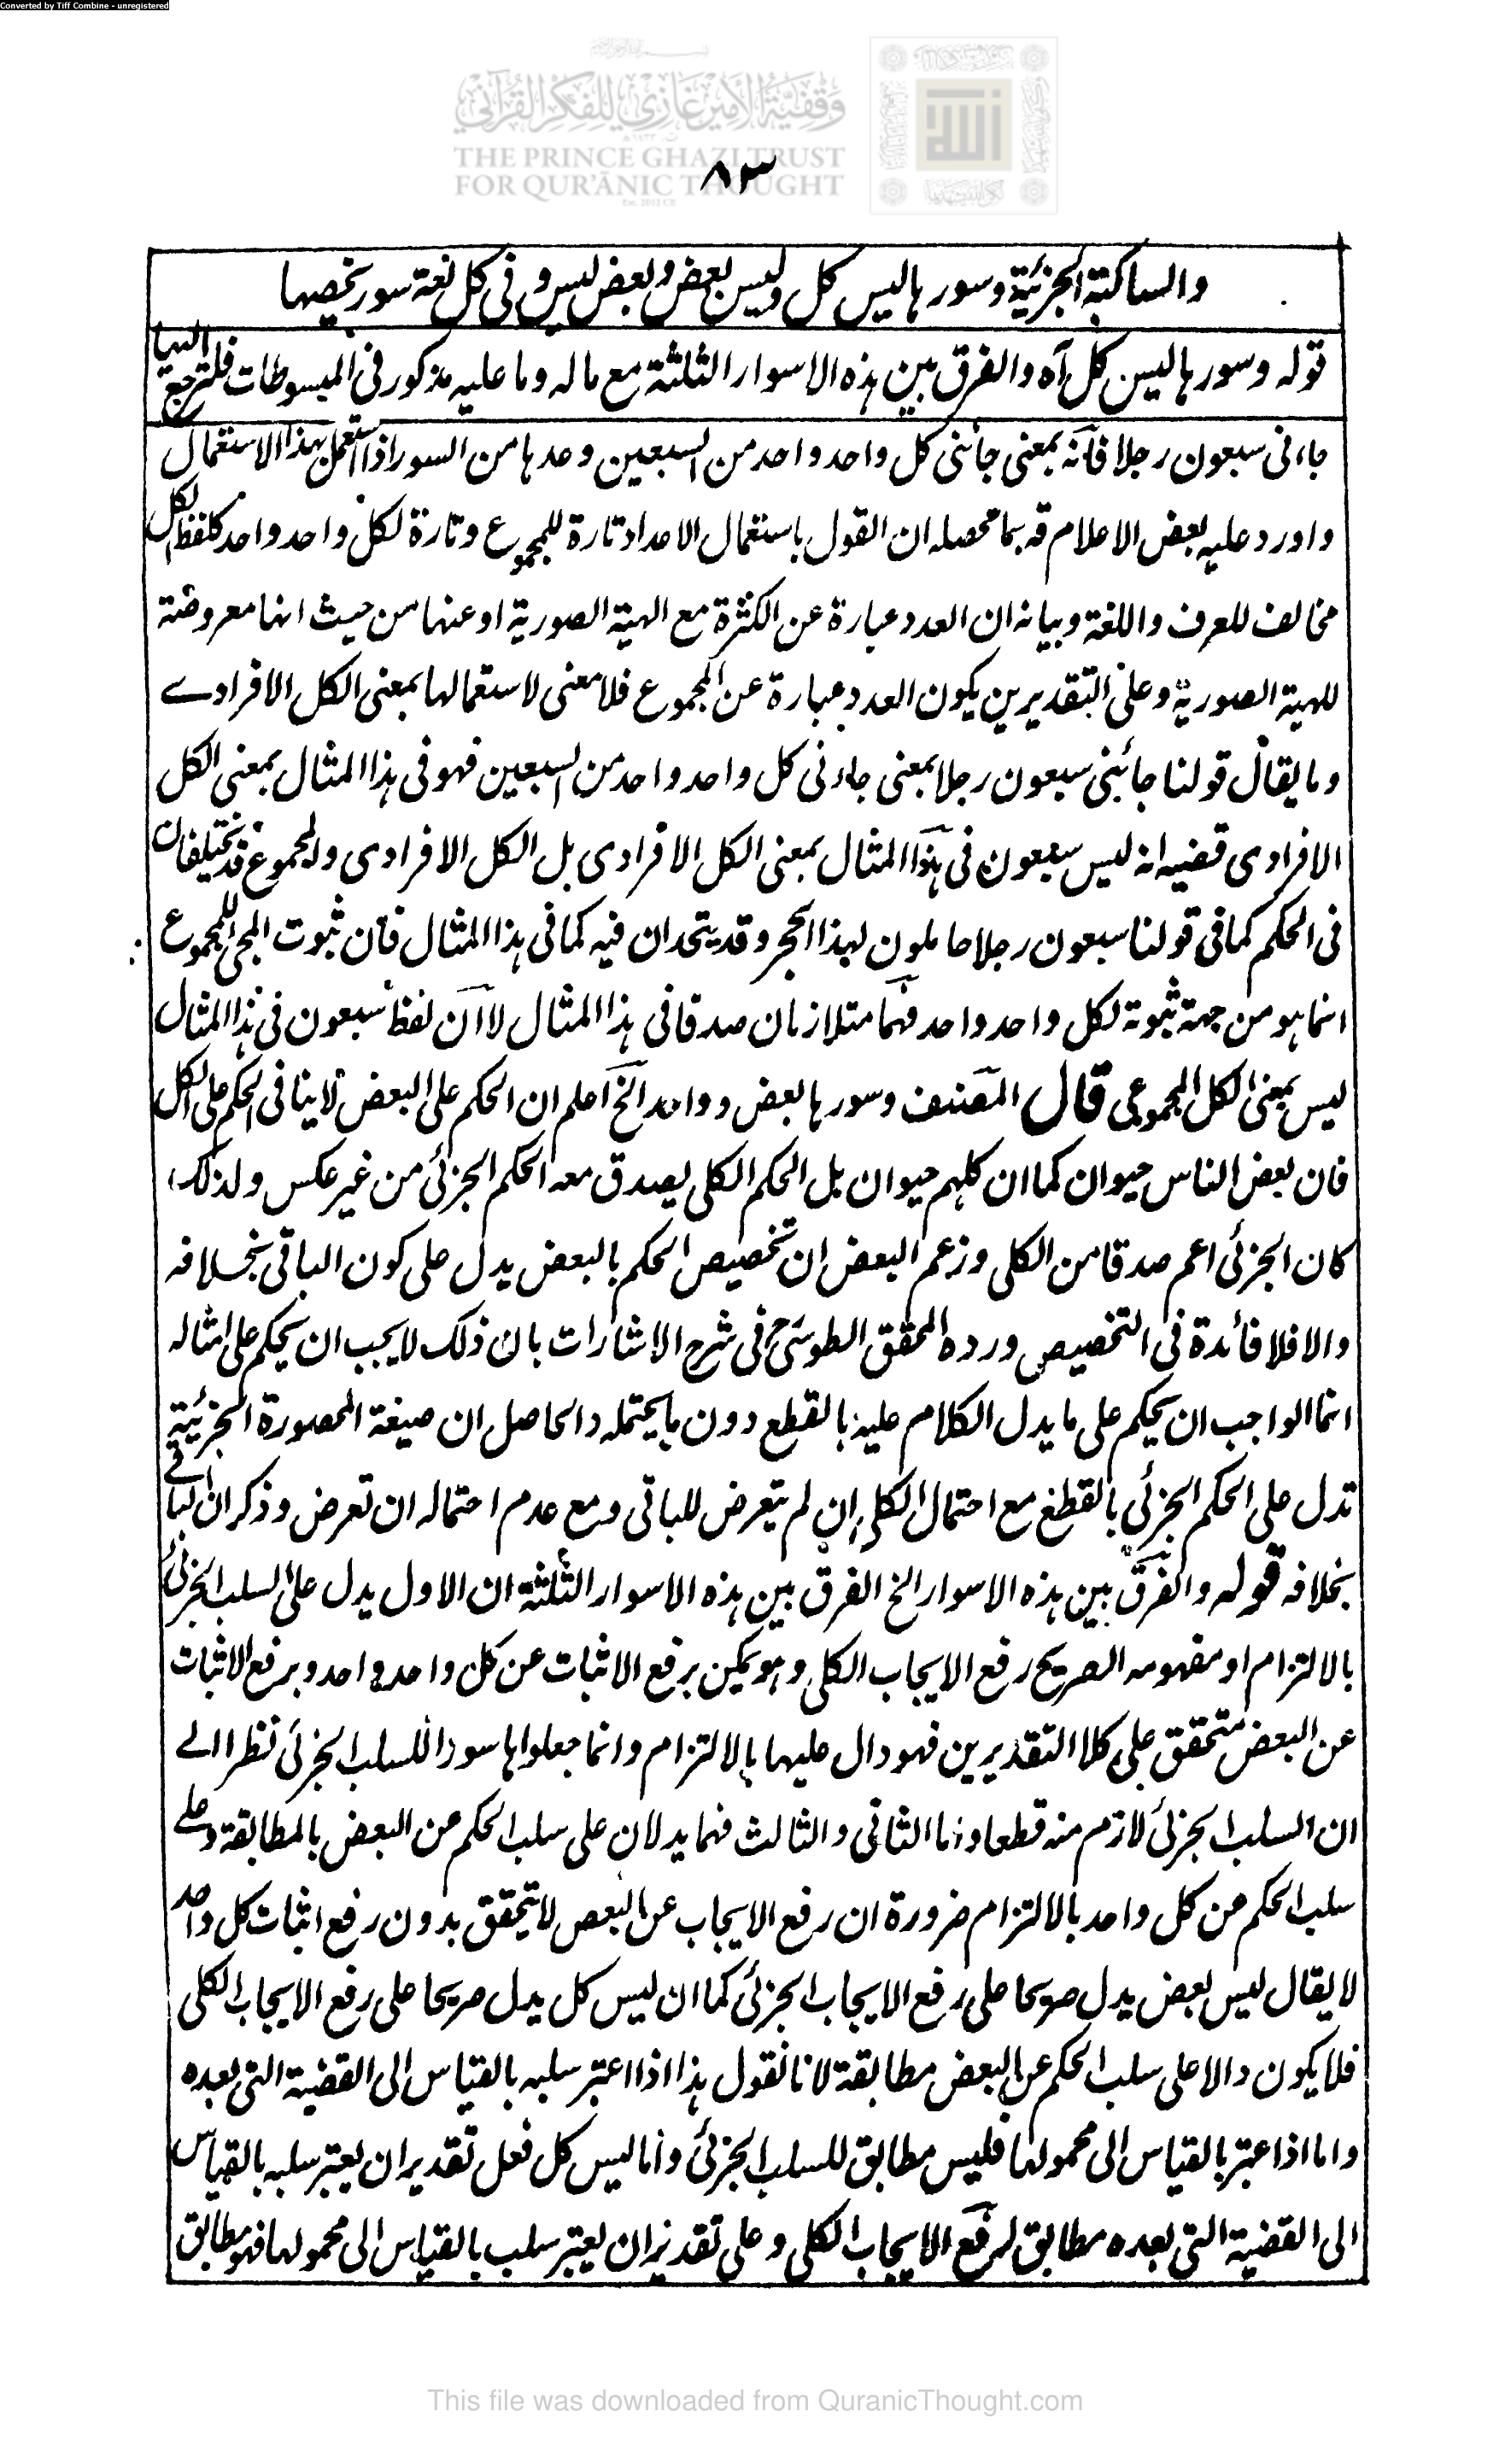 Converted by Tiff Combine - unregistered
وقفية الأمير غازي للفكر القرآني
THE PRINCE GHAZI TRUST
FOR QUR'ĀNIC THOUGHT
٨٣
والسالبة الجزئية وسورها ليس كل وليس بعض وبعض ليس وفى كل لغة سور يخصها
قوله وسورها ليس كل آه والفرق بين هذه الاسوار الثلثة مع ماله وما عليه مذكور فى المبسوطات فلترجع اليها
جاءنى سبعون رجلا فانه بمعنى جائنى كل واحد واحد من السبعين وعدها من السور اذا استعمل بهذا الاستعمال
واورد عليه بعض الاعلام قه بما محصله ان القول باستعمال الاعداد تارة للمجموع وتارة لكل واحد واحد كلفظ الكل
مخالف للعرف واللغة وبيانه ان العدد عبارة عن الكثرة مع الهية الصورية او عنها من حيث انها معروضة
للهية الصورية وعلى التقديرين يكون العدد عبارة عن المجموع فلا معنى لاستعمالها بمعنى الكل الافرادے
وما يقال قولنا جائنى سبعون رجلا بمعنى جاءنى كل واحد واحد من السبعين فهو فى هذا المثال بمعنى الكل
الافرادى ففيه انه ليس سبعون فى هذا المثال بمعنى الكل الافرادى بل الكل الافرادى والمجموع قد يختلفان
فى الحكم كما فى قولنا سبعون رجلا حاملون لهذا الحجر وقد يتحدان فيه كما فى هذا المثال فان ثبوت المجئ للمجموع
انما هو من جهة ثبوته لكل واحد واحد فهما متلازمان صدقا فى هذا المثال لا ان لفظ سبعون فى هذا المثال
ليس بمعنى الكل المجموعى قال المصنف وسورها بعض وواحد الخ اعلم ان الحكم على البعض لا ينافى الحكم على الكل
فان بعض الناس حيوان كما ان كلهم حيوان بل الحكم الكلى يصدق معه الحكم الجزئى من غير عكس ولذلك
كان الجزئى اعم صدقا من الكلى وزعم البعض ان تخصيص الحكم بالبعض يدل على كون الباقى بخلافه
والا فلا فائدة فى التخصيص ورده المحقق الطوسى فى شرح الاشارات بان ذلك لا يجب ان يحكم على امثاله
انما الواجب ان يحكم على ما يدل الكلام عليه بالقطع دون ما يحتمله والحاصل ان صيغة المحصورة الجزئية
تدل على الحكم الجزئى بالقطع مع احتمال الكلى ان لم يتعرض للباقى ومع عدم احتماله ان تعرض وذكر ان الباقے
بخلافه قوله والفرق بين هذه الاسوار الخ الفرق بين هذه الاسوار الثلثة ان الاول يدل على السلب الجزئى
بالالتزام اذ مفهومه الصريح رفع الايجاب الكلى وهو يمكن برفع الاثبات عن كل واحد واحد وبرفع الاثبات
عن البعض متحقق على كلا التقديرين فهو دال عليها بالالتزام وانما جعلوها سورا للسلب الجزئى نظرا الے
ان السلب الجزئى لازم منه قطعا واما الثانى والثالث فهما يدلان على سلب الحكم عن البعض بالمطابقة وعلے
سلب الحكم عن كل واحد بالالتزام ضرورة ان رفع الايجاب عن البعض لا يتحقق بدون رفع اثبات كل واحد
لا يقال ليس بعض يدل صريحا على رفع الايجاب الجزئى كما ان ليس كل يدل صريحا على رفع الايجاب الكلى
فلا يكون دالا على سلب الحكم عن البعض مطابقة لانا نقول هذا اذا اعتبر سلبه بالقياس الى القضية التى بعده
واما اذا اعتبر بالقياس الى محمولها فليس مطابق للسلب الجزئى واما ليس كل فعلى تقدير ان يعتبر سلبه بالقياس
الى القضية التى بعده مطابق لرفع الايجاب الكلى وعلى تقدير ان يعتبر سلب بالقياس الى محمولها فهو مطابق
This file was downloaded from QuranicThought.com